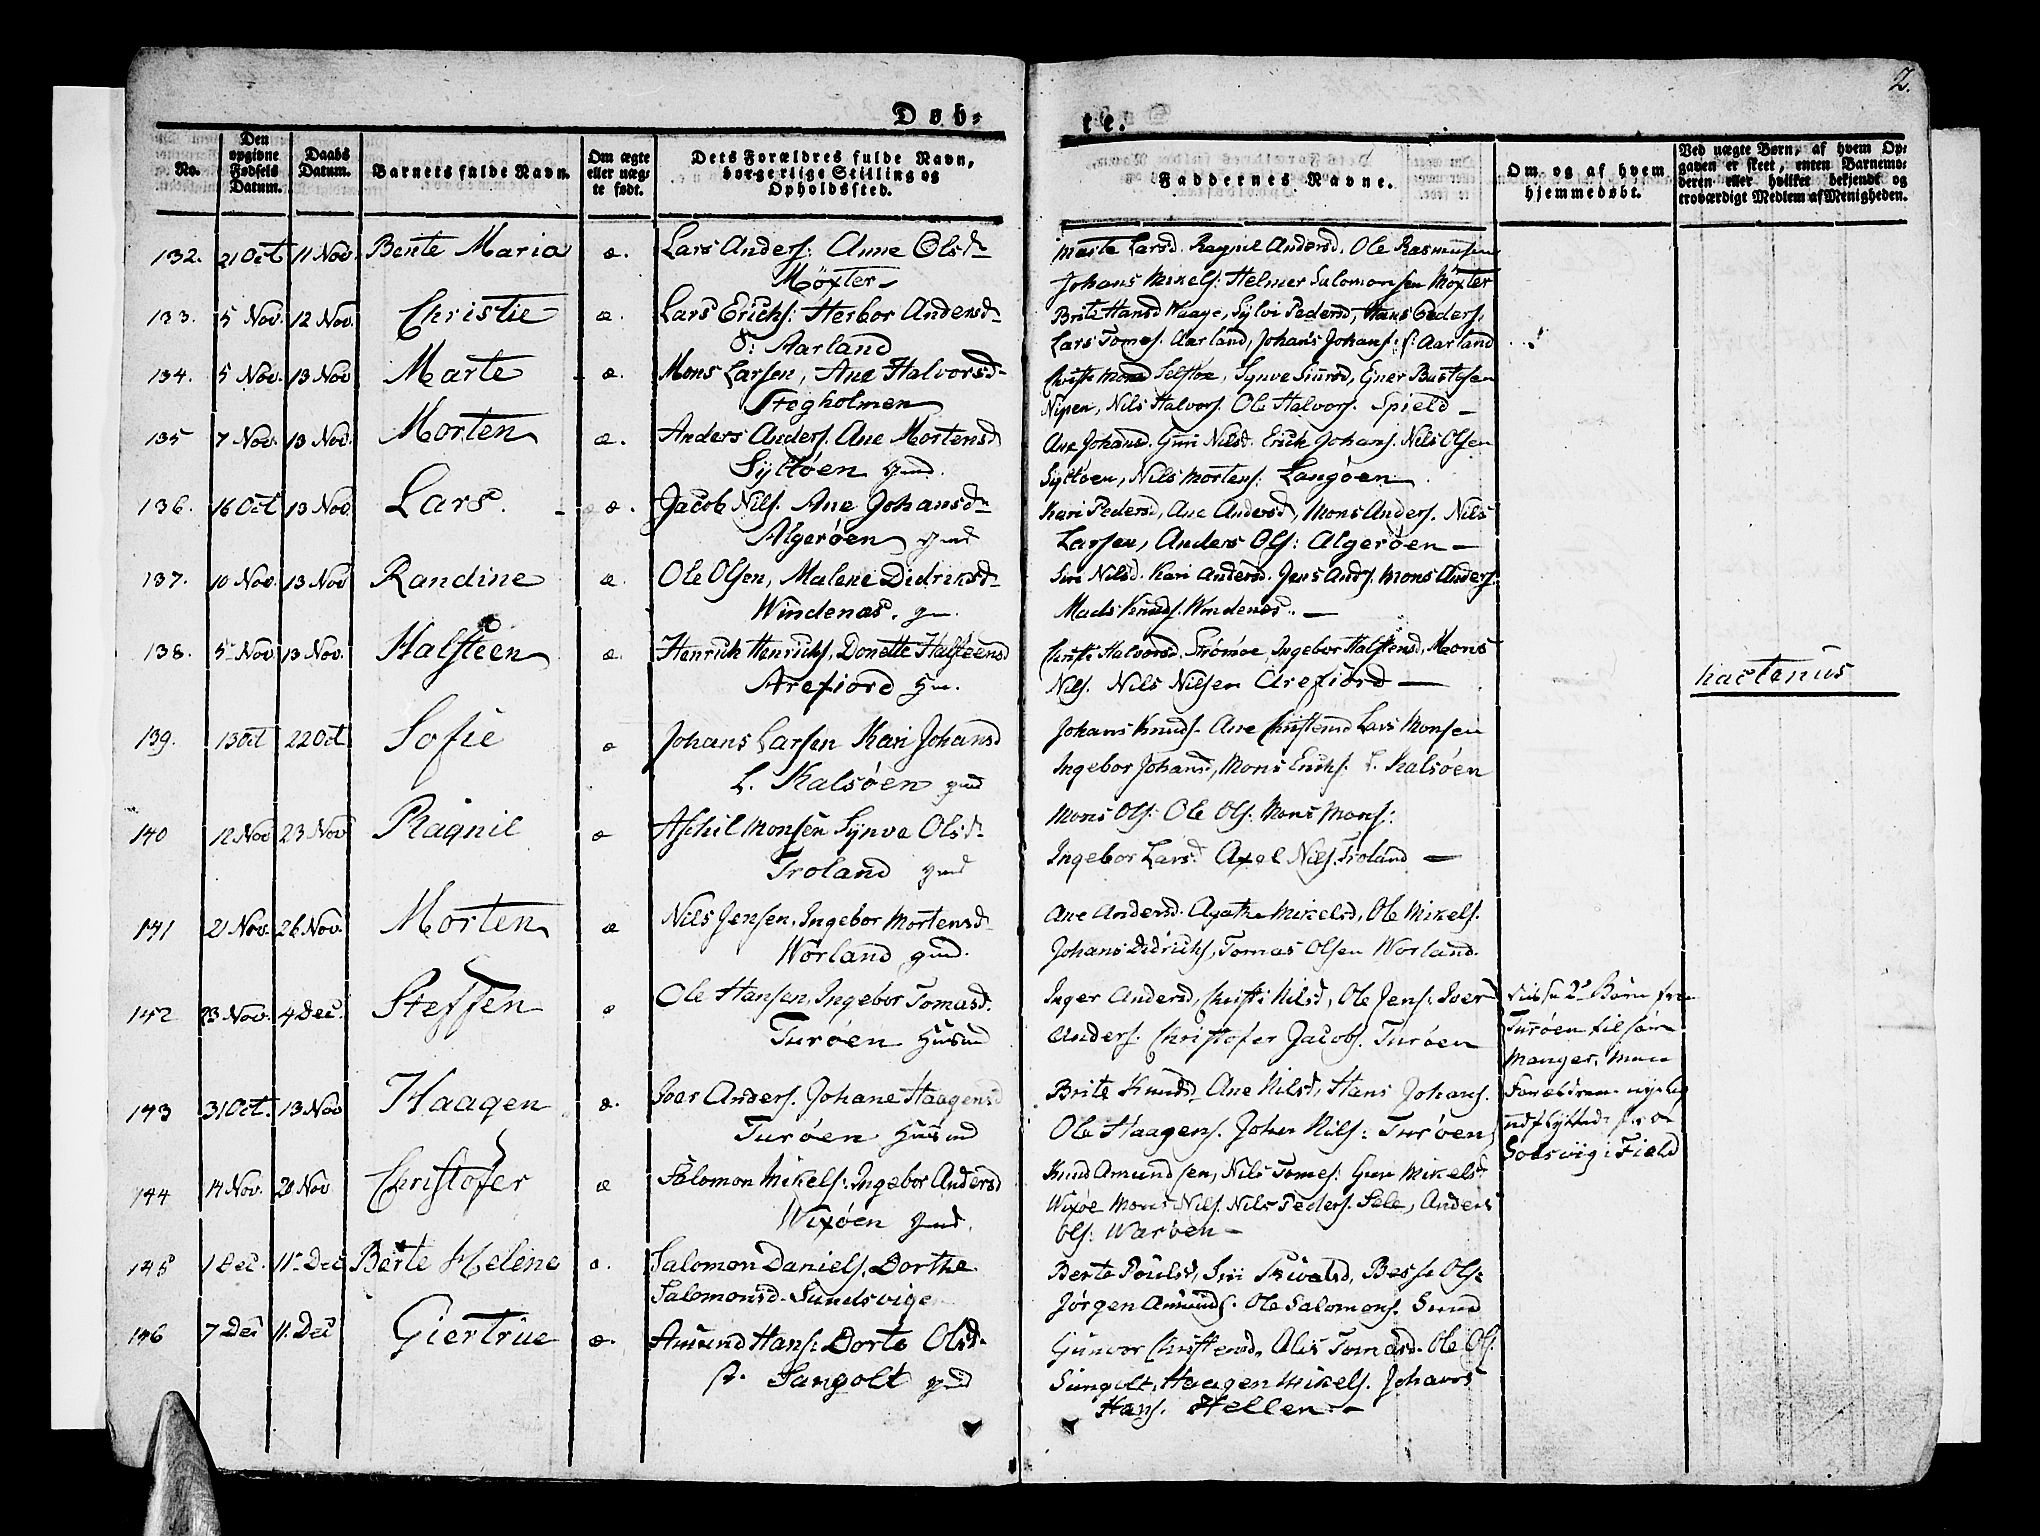 2.
Døb-
te.
No.
Den opgivne Fødsels Datum.
Daabs Datum.
Barnets fulde Navn.
Om ægte eller uægte født.
Dets Forældres fulde Navn, borgerlige Stilling og Opholdssted.
Faddernes Navne.
Om og af hvem hjemmedøbt.
Ved uægte Børn, af hvem Opgaven er skeet, enten Barnemoderen eller hvilket bekjendt og troværdigt Medlem af Menigheden.
132. 21 Oct 11 Nov Bente Maria æ. Lars Anders: Anne Olsdr Marte Larsd. Ragnil Andersd. Ole Rasmusen
Møxter Johans Mikels: Helmer Salomonsen Møxter
133. 5 Nov. 12 Nov. Christie æ. Lars Erichs: Herbor Andersdr Brite Hansd Waage, Sylvi Pedersd, Hans Peders.
S: Aarland Lars Tomes. Aarland, Johans Johans: S: Aarland
134. 5 Nov. 13 Nov Marte æ. Mons Larsen, Ane Halvorsdr Christi Monsd Selstøe, Synve Siursd,
Stegholmen Nipen, Nils Halvors. Ole Halvors. Spield
135 7 Nov. 13 Nov. Morten æ. Anders Anders. Ane Mortensd Ane Johansd. Guri Nilsd. Erich Johans. Nils Olsen
Syltøen gmd. Syltøen, Nils Mortens: Langøen
136. 16 Oct 13 Nov. Lars. æ. Jacob Nils. Ane Johansdr Kari Pedersd, Ane Andersd, Mons Anders. Nils
Algerøen gmd Larsen, Anders Ols: Algerøen
137. 10 Nov. 13 Nov Randine æ. Ole Olsen, Malene Didriksdr Siri Nilsd. Kari Andersd. Jens And: Mons Anders.
Windenæs. gm. Mads Knuds. Windenæs.
138. 5 Nov 13 Nov. Halsteen æ. Henrich Henrichs, Donette Halsteensd Christi Halvorsd. Strømøe, Ingebor Halstensd, Mons
Arefiord Hm. Nils. Nils Nilsen Arefiord
hactenus
139. 13 Oct 22 Oct Sofie æ Johans Larsen Kari Johansd Johans Knuds. Ane Christensd Lars Monsen
L. Kalsøen gmd Ingebor Johansd, Mons Erichs. L. Kalsøen
140 12 Nov 23 Nov Ragnil æ Aschil Monsen Synve Olsdr Mons Ols: Ole Ols. Mons Mons:
Troland gmd Ingebor Larsd Axel Nils. Troland
141 21 Nov. 26 Nov. Morten æ Nils Jensen, Ingebor Mortensdr Ane Andersd. Agathe Mikelsd, Ole Mikels.
Worland gmd. Johans Didrichs, Tomas Olsen Worland.
142 23 Nov. 4 Dec. Steffen æ Ole Hansen, Ingebor Tomasd. Inger Andersd, Christi Nilsd, Ole Jens: Iver
Turøen Husmd Anders. Christofer Jacobs. Turøen
Disse 2de Børn fra
Turøen til
Manger, men
143 31 Oct. 13 Nov Haagen æ. Iver Anders. Johane Haagensd Brite Knudsd, Ane Nilsd, Hans Johans.
Turøen Husmd Ole Haagens. Johan Nils: Turøen
Forældrene nylig
udflyttede fra
Solsvig i Field
144 14 Nov. 20 Nov Christofer æ Salomon Mikels: Ingebor Andersd Knud Amundsen, Nils Tomes: Guri Mikelsd
Wixøen gmd. Wixøe Mons Nils. Nils Peders. Sele, Anders
Ols: Warøen
145 1 Dec. 11 Dec Berte Helene æ. Salomon Daniels, Dorthe Berte Poulsd, Besse Ols:
Salomonsd. Sundsvigen Jørgen Amunds: Ole Salomons. Sund
146 7 Dec 11. Dec Giertrue æ. Amund Hans: Dorte Olsdr Gunvor Christensd, Alis Tomasd. Ole Ols.
st. Sangolt gmd Sangolt, Haagen Mikels. Johans
Hans. Hellen